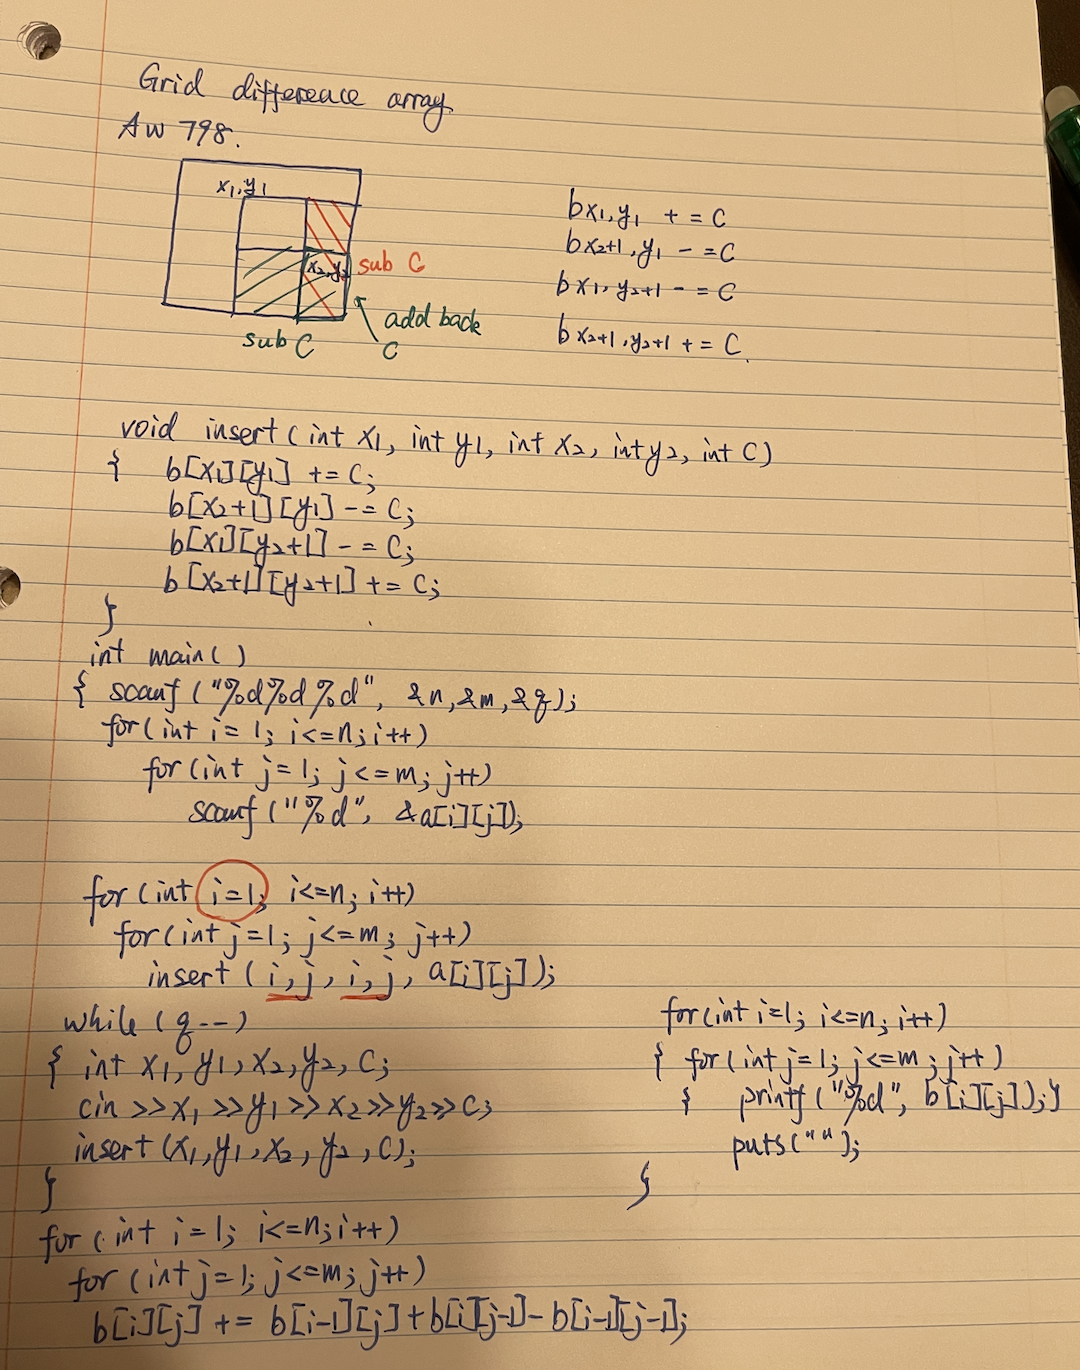 Grid difference array
AW 798.
x1,y1
x2,y2
sub C
add back
C
sub C
bx1,y1 += C
bx2+1,y1 -=C
bx1,y2+1 -=C
bx2+1,y2+1 += C.
void insert(int x1, int y1, int x2, int y2, int C)
{ b[x1][y1] += C;
b[x2+1][y1] -= C;
b[x1][y2+1] -= C;
b[x2+1][y2+1] += C;
}
int main()
{ scanf("%d%d%d", &n,&m,&q);
for(int i= 1; i<=n;i++)
for(int j=1; j<=m; j++)
scanf("%d", &a[i][j]);
for(int i=1; i<=n; i++)
for(int j=1; j<=m; j++)
insert(i,j, i,j, a[i][j]);
while(q--)
{ int x1, y1, x2, y2, C;
cin >>x1 >>y1 >>x2 >>y2 >>C;
insert(x1,y1,x2, y2, C);
}
for(int i=1; i<=n;i++)
for(int j=1; j<=m; j++)
b[i][j] += b[i-1][j]+b[i][j-1]-b[i-1][j-1];
for(int i=1; i<=n; i++)
{ for(int j=1; j<=m; j++)
{ printf("%d", b[i][j]);}
puts("");
}